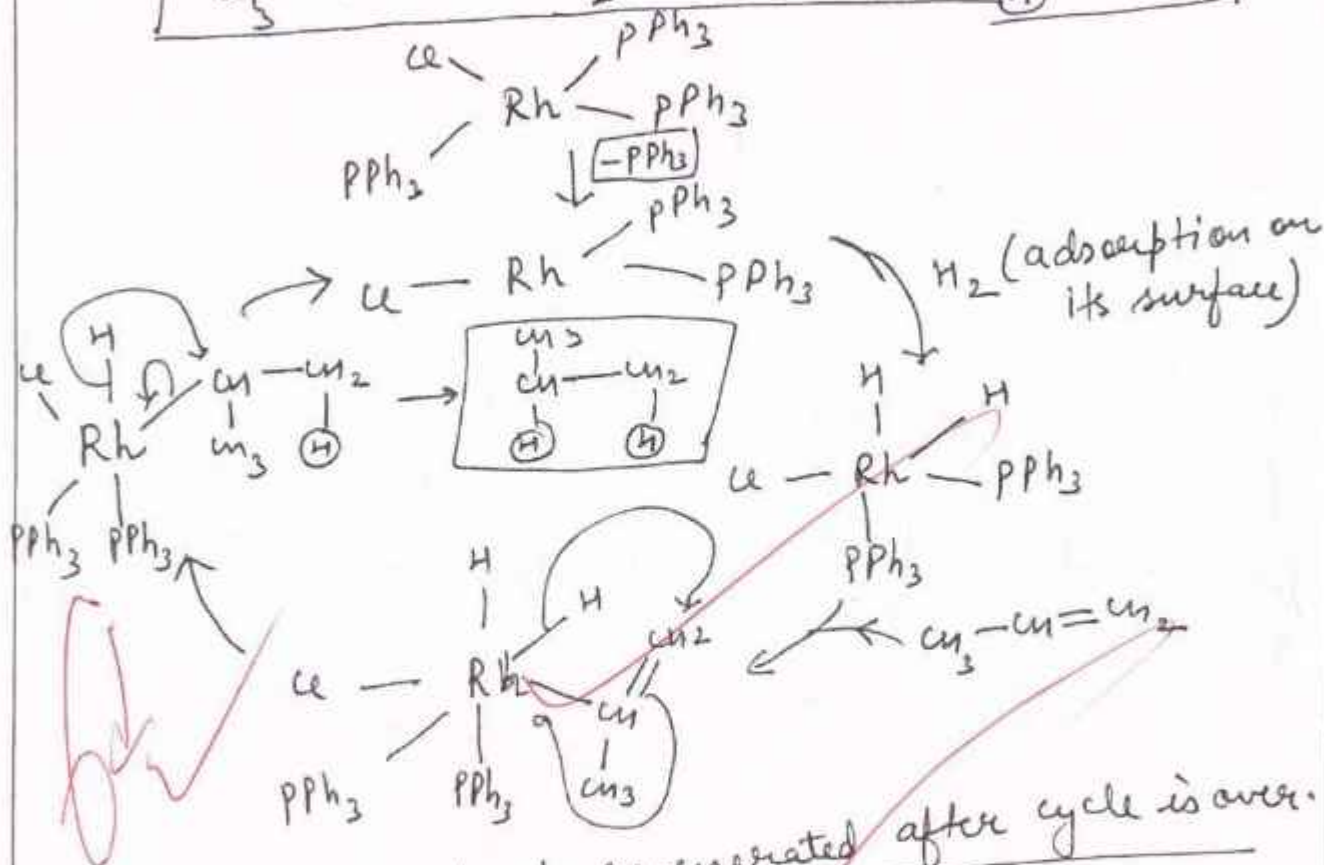 3
H
Cl PPh3
Rh PPh3
PPh3
-PPh3
PPh3
Cl — Rh — PPh3
H2 (adsorption on
its surface)
H
Cl Rh CH — CH2
CH3 H
PPh3 PPh3
CH3
CH — CH2
H H
H H
Cl — Rh — PPh3
PPh3
CH3 — CH = CH2
H H
CH2
Cl — Rh CH
CH3
PPh3 PPh3
after cycle is over.